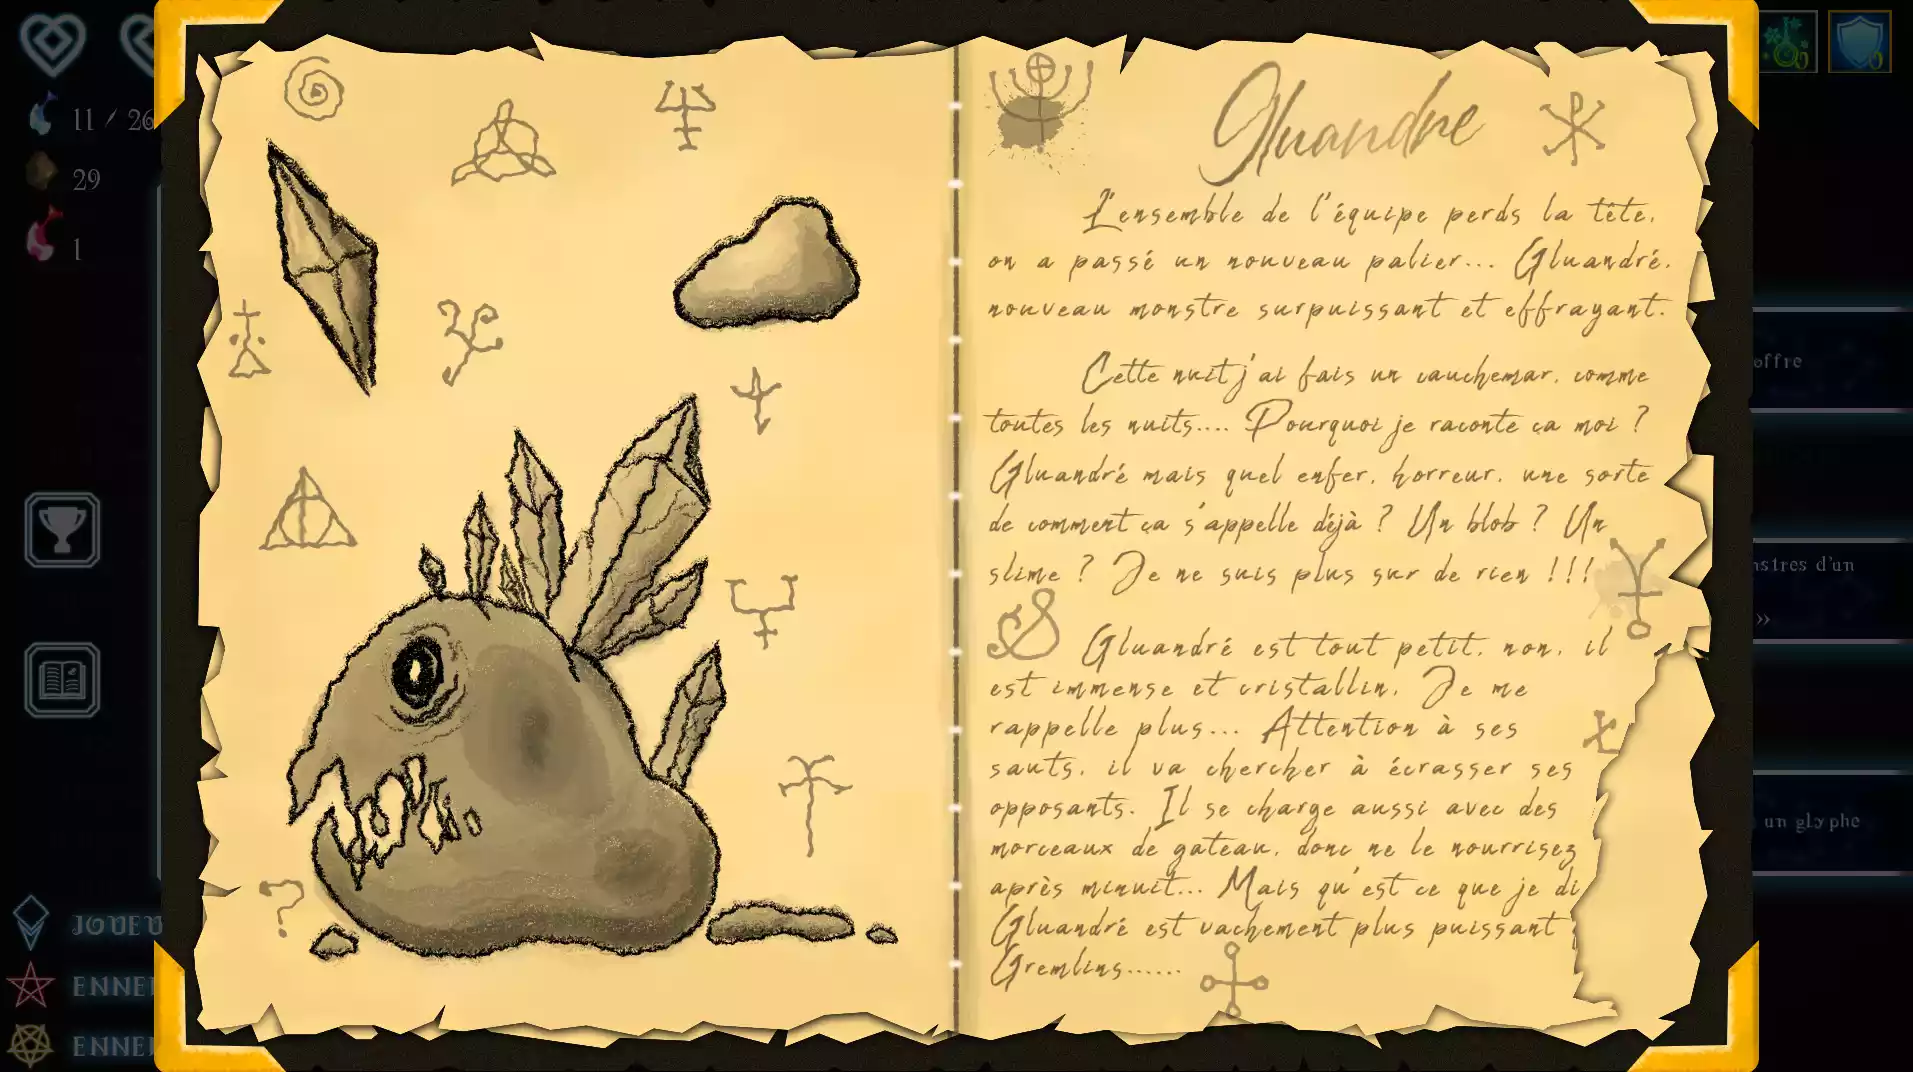 11 / 26
29
1
JOUEU
ENNE
ENNE
Gluandre
L'ensemble de l'équipe perds la tête,
on a passé un nouveau palier... Gluandré,
nouveau monstre surpuissant et effrayant.
Cette nuit j'ai fais un cauchemar, comme
toutes les nuits.... Pourquoi je raconte ça moi ?
Gluandré mais quel enfer, horreur, une sorte
de comment ça s'appelle déjà ? Un blob ? Un
slime ? Je ne suis plus sur de rien !!!
Gluandré est tout petit, non, il
est immense et cristallin. Je me
rappelle plus... Attention à ses
sauts, il va chercher à écrasser ses
opposants. Il se charge aussi avec des
morceaux de gateau, donc ne le nourrisez
après minuit... Mais qu'est ce que je di
Gluandré est vachement plus puissant
Gremlins......
0
0
offre
nstres d'un
»
un glyphe